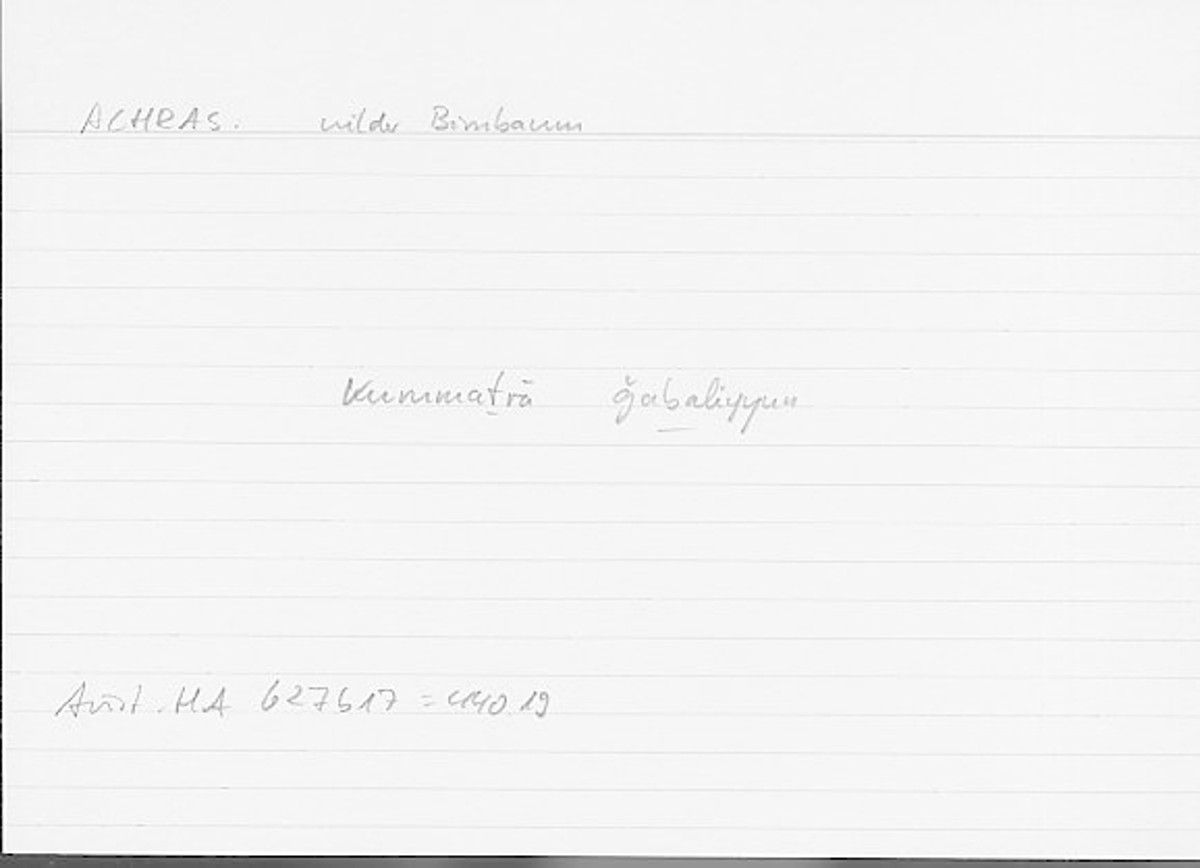 ACHRAS. wilder Birnbaum
kummaṯrā ǧabaliyyun
Arist. HA 627b17 = 440.19